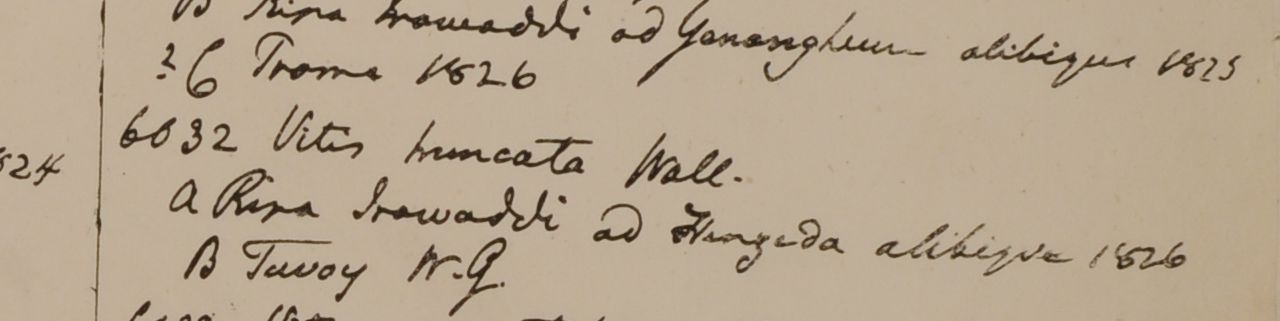 B Ripa Irawaddi ad Yenanghuen alibique 1825
? C Prome 1826
6032 Vitis truncata Wall.
824
A Ripa Irawaddi ad Henzeda alibique 1826
B Tavoy W.G.